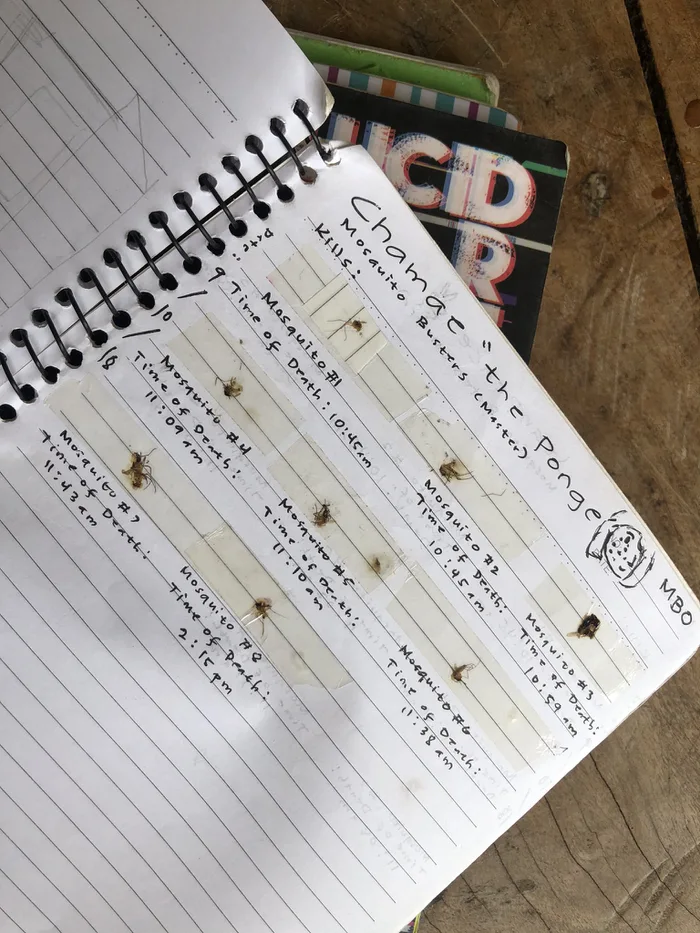 Chamae "the Ponge MBO
Mosquito Busters (Master)
Kills:
Date: 9 / 10 / 18
Mosquito #1
Time of Death: 10:45am
Mosquito #2
Time of Death:
10:45am
Mosquito #3
Time of Death:
10:59 am
Mosquito #4
Time of Death:
11:09 am
Mosquito #5
Time of Death:
11:10am
Mosquito #6
Time of Death:
11:38 am
Mosquito #7
Time of Death:
11:43 am
Mosquito #8
Time of Death:
2:15 pm